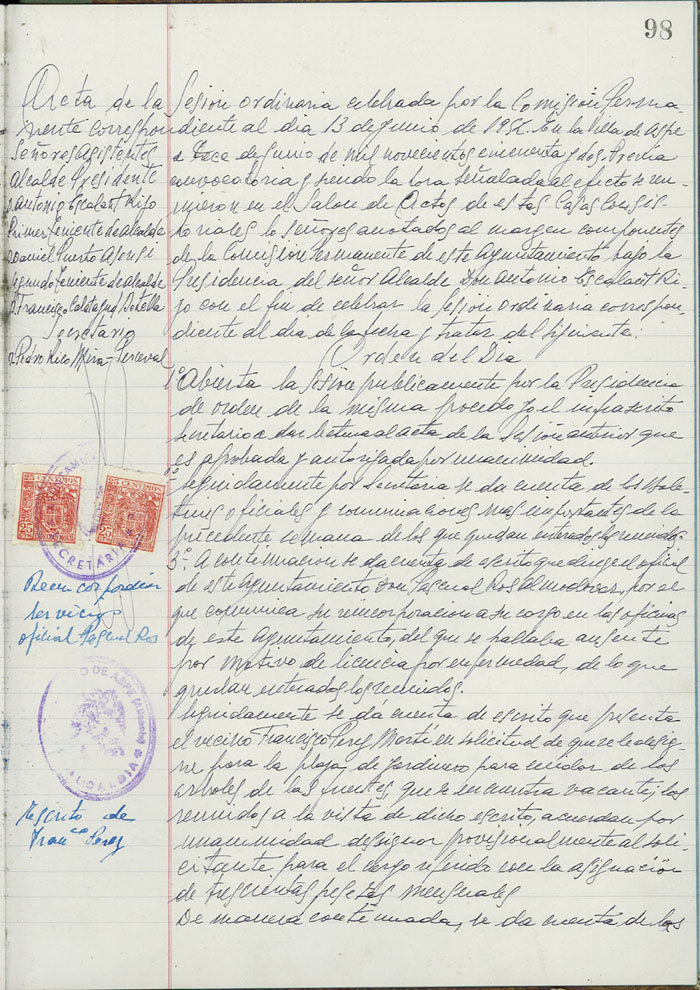 98
Acta de la Sesion ordinaria celebrada por la Comisión Perma-
nente correspondiente al dia 13 de Junio de 1952. En la villa de Aspe
a trece de Junio de mil novecientos cincuenta y dos. Previa
convocatoria y siendo la hora señalada al efecto se reu-
nieron en el Salon de Actos de estas Casas Consis-
toriales lo señores anotados al margen componentes
de la Comision Permanente de este Ayuntamiento bajo la
Presidencia del señor Alcalde Don Antonio Escalant Ri-
zo con el fin de celebrar la sesion ordinaria correspon-
diente al dia de la fecha y tratar del siguiente:
Señores Asistentes
Alcalde Presidente
D. Antonio Escalant Rizo
Primer Teniente de alcalde
D. Daniel Puerto Asensi
Segundo Teniente de alcalde
D. Francisco Calatayud Botella
Secretario
D. Pedro Rico Mira-Perceval
Orden del Dia
1º Abierta la sesion publicamente por la Presidencia
de orden de la misma procedo yo el infrascrito
secretario a dar lectura al acta de la Sesion anterior que
es aprobada y autorizada por unanimidad.
Seguidamente por Secretaria se da cuenta de los Bole-
tines oficiales y comunicaciones mas importantes de la
precedente semana de los que quedan enterados los reunidos.
3º- A continuacion se da cuenta de escrito que dirige el oficial
de este Ayuntamiento Don Pascual Ros Almodovar, por el
que comunica su reincorporacion a su cargo en las oficinas
de este Ayuntamiento, del que se hallaba ausente
por motivo de licencia por enfermedad, de lo que
quedan enterados los reunidos.
Seguidamente se dá cuenta de escrito que presenta
el vecino Francisco Perez Martí en solicitud de que se le desig-
ne para la plaza de Jardinero para cuidar de los
arboles de las fuentes, que se encuentra vacante; los
reunidos a la vista de dicho escrito, acuerdan por
unanimidad designar provisionalmente al soli-
citante para el cargo referido con la asignación
de trescientas pesetas mensuales
De manera continuada, se da cuenta de los
25 CENTIMOS 25
25 CENTIMOS 25
SECRETARIA
servicio
oficial Pascual Ros
DE ASPE (Alicante)
ALCALDIA
Escrito de
Franco Perez